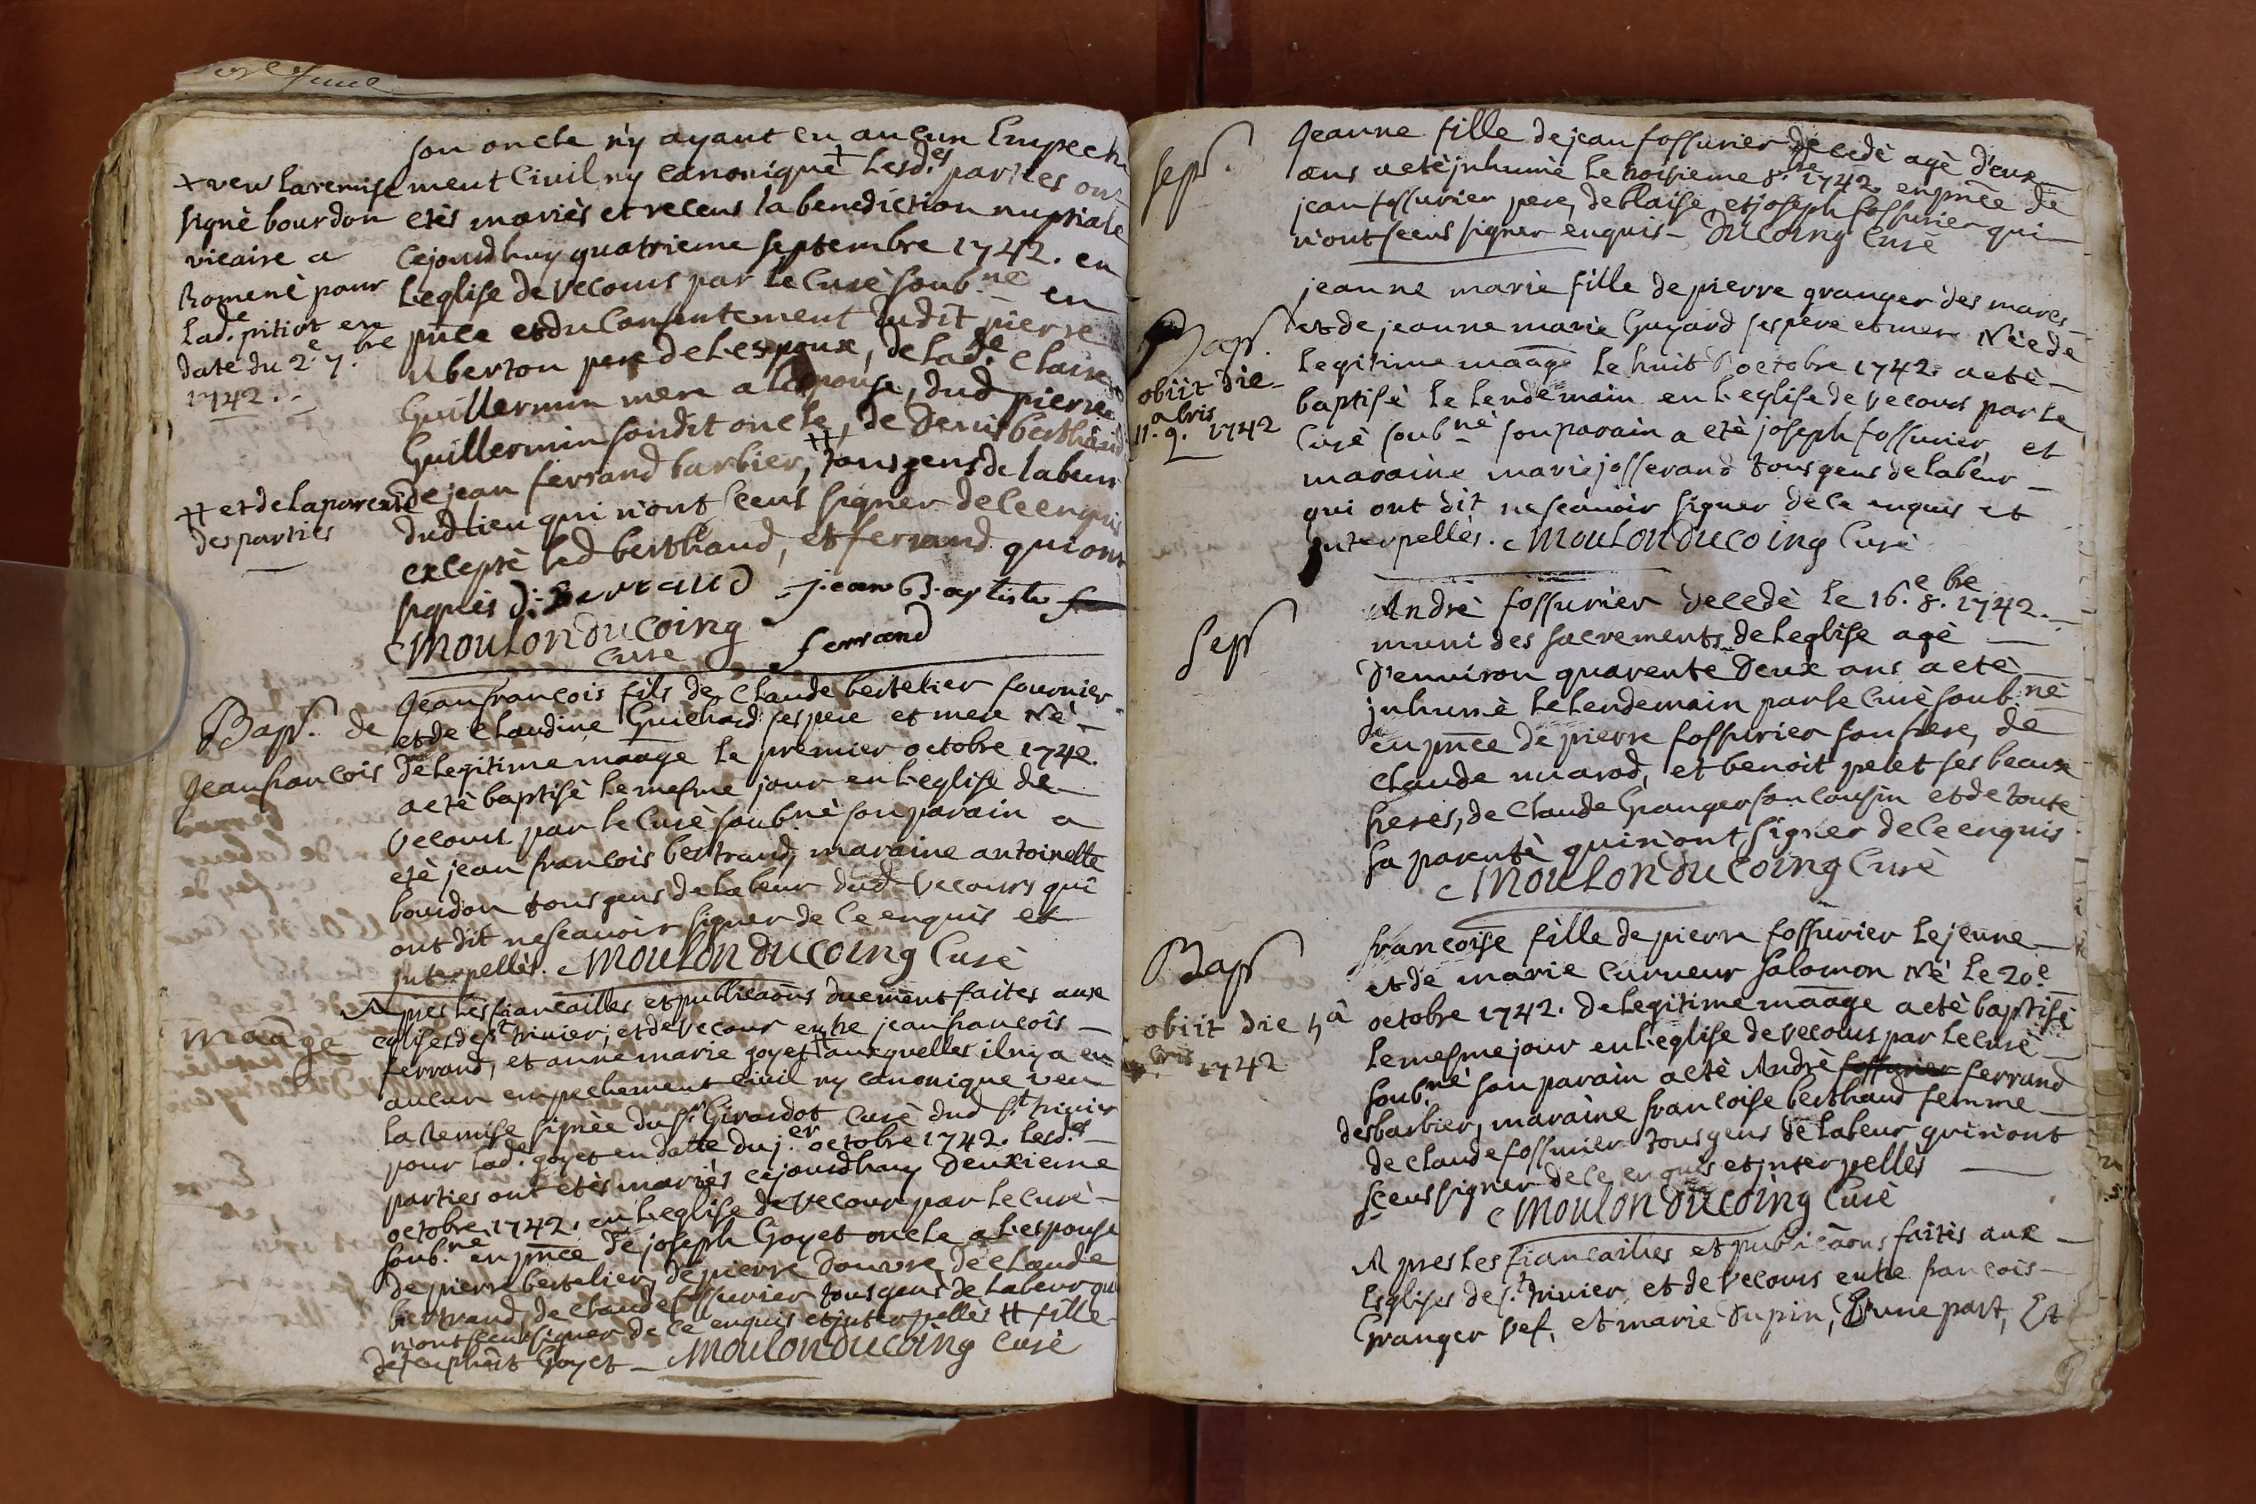 son oncle n'y ayant eu aucun Empeche
ment Civil ny canonique + Lesd.es parties ont
etès mariès et receus la benediction nuptiale
cejourdhuy quatrieme septembre 1742. en
L'eglise de Vecours par le Curè soub.nè en
pn̄ce et du Consentement dudit pierre
uberton pere de L'espoux, de Lad.e Claire
Guillermin mere a L'epouse, dud pierre
Guillermin sondit oncle, de Denis berthaud
de jean ferrand barbier, ++ tous gens de labeur
dud lieu qui n'ont sceus signer de ce enquis
exceptè led berthaud, et ferrand qui ont
signès D. Bertaud jean Baptiste
ferrand
Moulon Ducoing
Curè
+ veu la remise
signè bourdon
vicaire a
Romenè pour
Lad.e pitiot en
date du 2.e 7.bre
1742.
++ et de la parentè
des parties
Bap.t de
Jean francois
Jean francois fils de Claude bertelier fournier
et de Claudine Guichard ses pere et mere Nè
de legitime maāge le premier octobre 1742.
a etè baptisè le mesme jour en L'eglise de
Vecours par le Curè soub.nè son parain a
etè jean francois bertrand, maraine antoinette
bourdon tous gens de labeur dud Vecours qui
ont dit ne scavoir signer de ce enquis et
interpellès. Moulon Ducoing Curè
maāge
Apres les fiancailles et publicaōns duement faites aux
eglises de s.t trivier, et de vecour entre jean francois
ferrand, et anne marie goyet ++ auxquelles il n'y a eu
aucun empechement civil ny canonique veu
la Remise signèe du s.r Girardot Curè dud s.t trivier
pour lad.e goyet en datte du j.er octobre 1742. lesd.es
parties ont etès mariès cejourdhuy Deuxieme
octobre 1742. en L'eglise de vecour par le curè
soub.nè en pn̄ce de joseph Goyet oncle a L'espouse
de pierre bertelier, de pierre Douvre, de Claude
bertrand, de claude fossurier tous gens de labeur qui
n'ont sceus signer de ce enquis et interpellès ++ fille
de Goyet Moulon Ducoing Curè
sep.r
Jeanne fille de jean fossurier decedè agè d'eux
ans a etè inhumè le troisieme 8.bre 1742. en pn̄ce de
jean fossurier pere, de blaise, et joseph fossurier qui
n'ont sceus signer enquis Ducoing Curè
Bap.t
obiit die
11. 9.abris 1742
jeanne marie fille de pierre granger des mares
et de jeanne marie Guyard ses pere et mere Nèe de
legitime maāge le huit octobre 1742. a etè
baptisè le lendemain en L'eglise de vecours par le
Curè soub.nè son parain a etè joseph fossurier, et
maraine marie josserand tous gens de labeur
qui ont dit ne scavoir signer de ce enquis et
interpellès. Moulon Ducoing Curè
Sep.r
Andrè fossurier decedè le 16.e 8.bre 1742.
muni des sacrements de L'eglise agè
d'environ quarente Deux ans a etè
inhumè le lendemain par le Curè soub.nè
en pn̄ce de pierre fossurier son frere, de
Claude marod, et benoit pelet ses beaux
freres, de Claude Granger son cousin et de toute
sa parentè qui n'ont signer de ce enquis
Moulon Ducoing Curè
Bap.t
obiit die 5.a
bris 1742
francoise fille de pierre fossurier le jeune
et de marie curveur salomon Nè le 20.e
octobre 1742. de legitime maāge a etè baptisè
le mesme jour en L'eglise de vecours par le curè
soub.nè son parain a etè Andrè fossurier ferrand
des barbier, maraine francoise berthaud femme
de Claude fossurier tous gens de labeur qui n'ont
sceus signer de ce enquis et interpellès
Moulon Ducoing Curè
Apres les fiancailles et publicaōns faites aux
Esglises de s.t trivier et de vecours entre francois
Granger vef, et marie Dupin, D'une part, Et